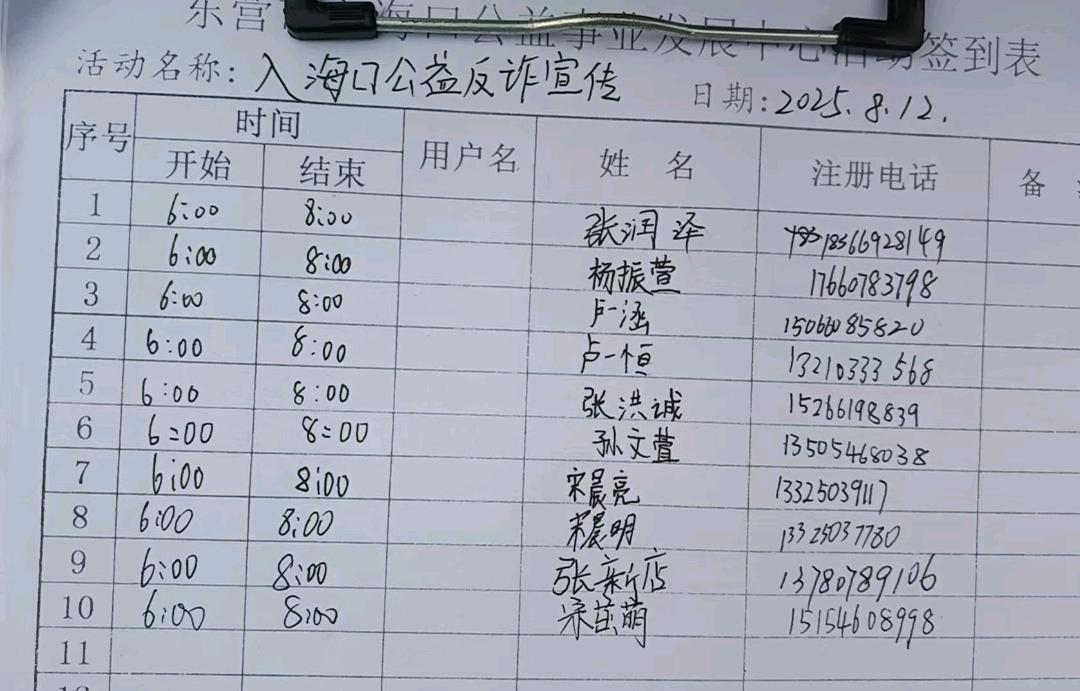 东营 海口公益事业发展中心活动签到表
活动名称: 入海口公益反诈宣传 日期: 2025.8.12.
序号 时间 用户名 姓 名 注册电话 备
开始 结束
1 6:00 8:00 张润泽 18366928149
2 6:00 8:00 杨振萱 17660783798
3 6:00 8:00 卢一涵 15066085820
4 6:00 8:00 卢一恒 13210333568
5 6:00 8:00 张洪诚 15266198839
6 6:00 8:00 孙文萱 13505468038
7 6:00 8:00 宋晨亮 13325039117
8 6:00 8:00 宋晨明 13325037780
9 6:00 8:00 张新店 13780789106
10 6:00 8:00 宋茁萌 15154608998
11